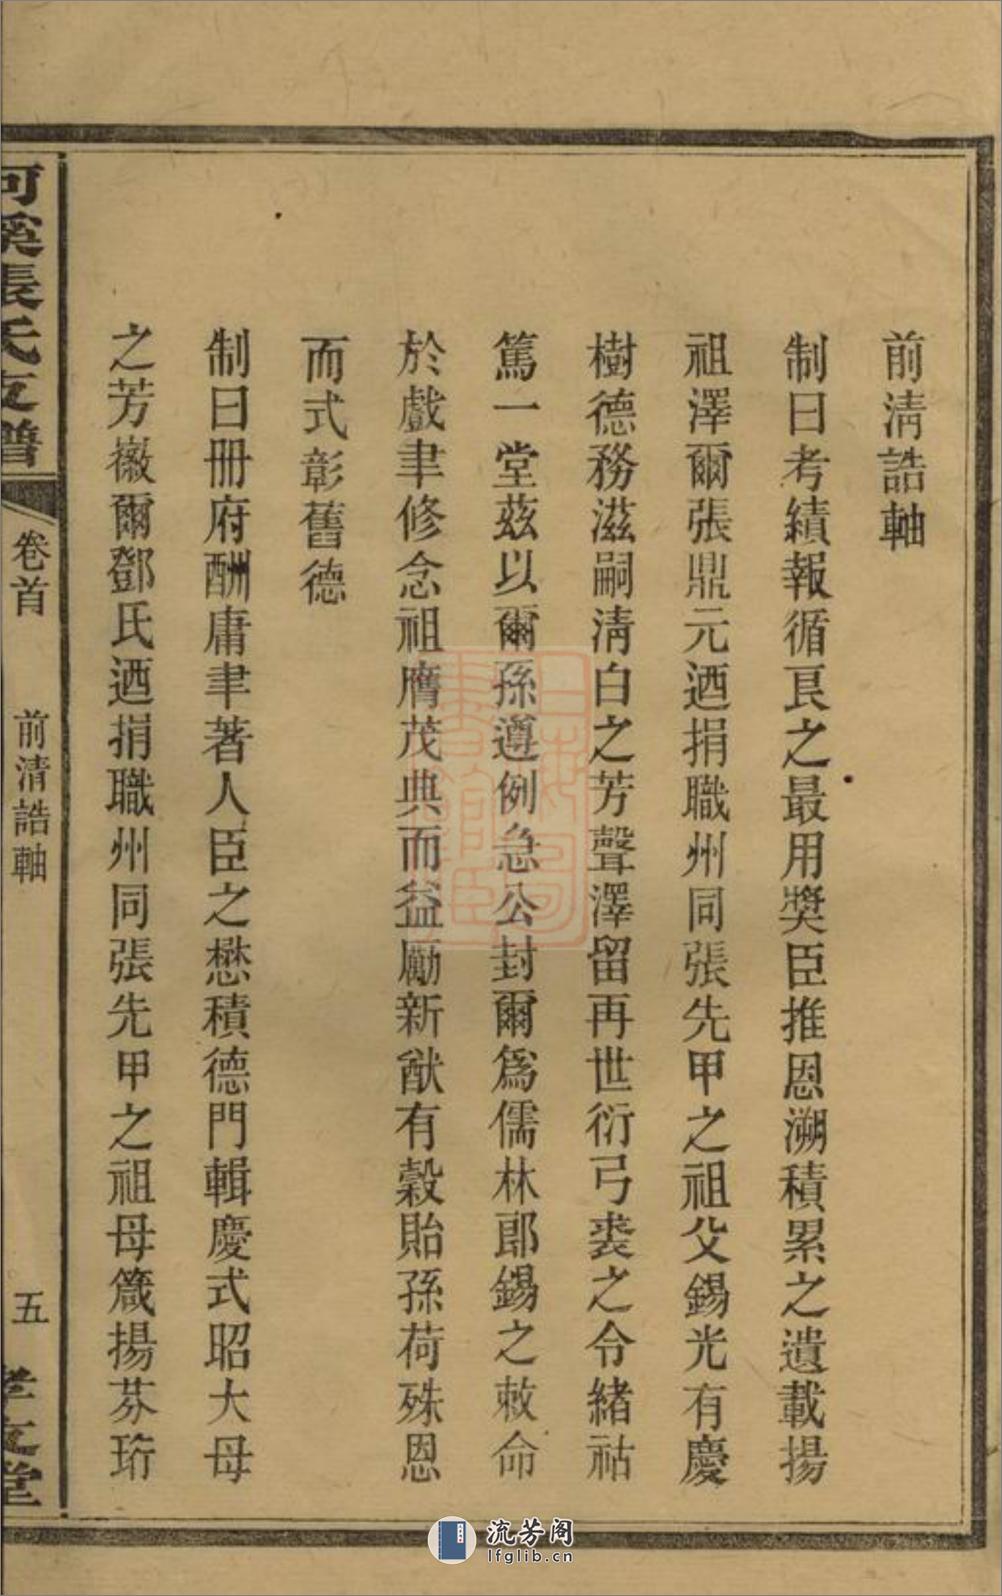 前清誥軸
制曰考績報循良之最用獎臣推恩溯積累之遺載揚
祖澤爾張鼎元迺捐職州同張先甲之祖父錫光有慶
樹德務滋嗣清白之芳聲澤留再世衍弓裘之令緒祜
篤一堂茲以爾孫遵例急公封爾為儒林郎錫之敕命
於戲聿修念祖膺茂典而益勵新猷有穀貽孫荷殊恩
而式彰舊德
制曰冊府酬庸聿著人臣之懋積德門輯慶式昭大母
之芳徽爾鄧氏迺捐職州同張先甲之祖母箴揚芬珩
河溪張氏支譜
卷首
前清誥軸
五
孝友堂
流芳阁
lfglib.cn